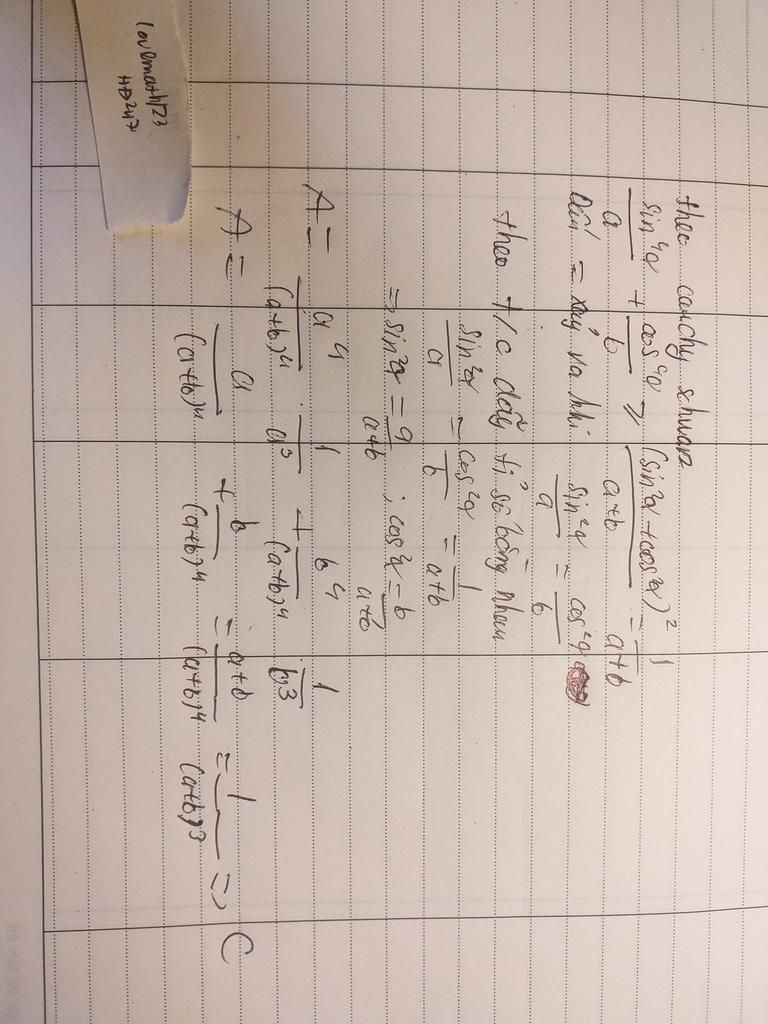 theo cauchy schwarz
sin⁴α/a + cos⁴α/b ≥ (sin²α + cos²α)²/(a+b) = 1/(a+b)
Dấu = xảy ra khi sin²α/a = cos²α/b
theo t/c dãy tỉ số bằng nhau
sin²α/a = cos²α/b = 1/(a+b)
=> sin²α = a/(a+b) ; cos²α = b/(a+b)
A = a⁴/(a+b)⁴ . 1/a³ + b⁴/(a+b)⁴ 1/b³
A = a/(a+b)⁴ + b/(a+b)⁴ = (a+b)/(a+b)⁴ = 1/(a+b)³ => C
lovemath123